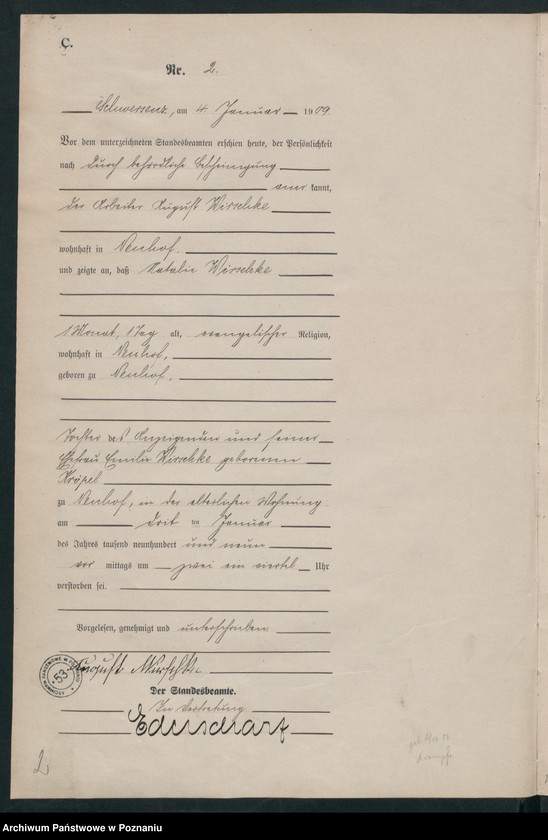 C.
Nr. 2.
Schwersenz, am 4. Januar 1909
Vor dem unterzeichneten Standesbeamten erschien heute, der Persönlichkeit
nach durch behördliche Bescheinigung
aner kannt,
der Arbeiter August Wirschke
wohnhaft in Neuhof,
und zeigte an, daß Natalie Wirschke
1 Monat, 1 Tag alt, evangelischer Religion,
wohnhaft in Neuhof,
geboren zu Neuhof,
Tochter des Anzeigenden und seiner
Ehefrau Emilie Wirschke geborenen
Kröpel
zu Neuhof, in der elterlichen Wohnung
am drit ten Januar
des Jahres tausend neunhundert und neun
vor mittags um zwei ein viertel Uhr
verstorben sei.
Vorgelesen, genehmigt und unterschrieben
August
ARCHIWUM PAŃSTWOWE W POZNANIU
53
Der Standesbeamte.
In Vertretung
2
Archiwum Państwowe w Poznaniu